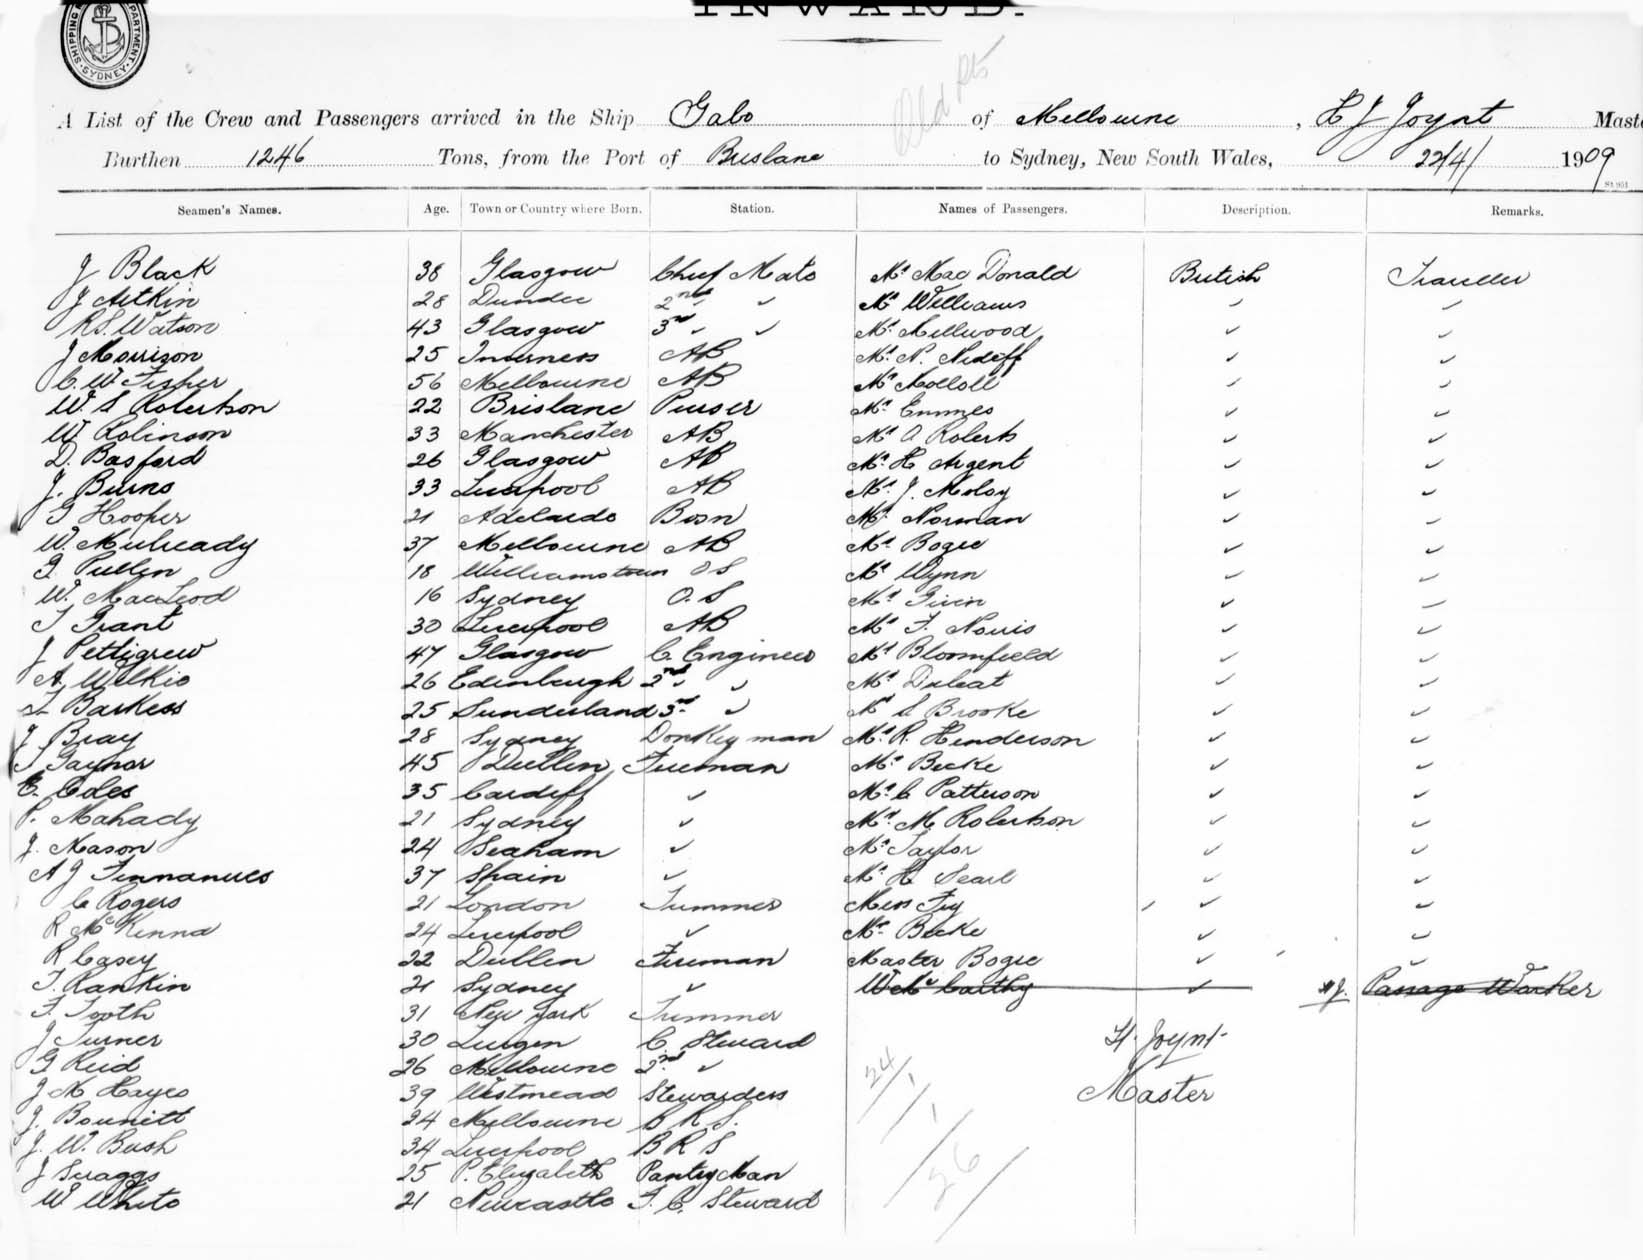 INWARD.
SHIPPING DEPARTMENT SYDNEY
Old Rts
A List of the Crew and Passengers arrived in the Ship Gabo of Melbourne, H J Joynt Maste
Burthen 1246 Tons, from the Port of Brisbane to Sydney, New South Wales, 22/4/ 1909
St 951
Seamen's Names. Age. Town or Country where Born. Station. Names of Passengers. Description. Remarks.
J Black 38 Glasgow Chief Mate Mr Mac Donald British Traveller
J Aitkin 28 Dundee 2nd " " Mr Williams " "
R.S. Watson 43 Glasgow 3rd " " Mr Millwood " "
J Morrison 25 Inverness AB Mr N. " "
C. W Fisher 56 Melbourne AB Mr " "
W. S Robertson 22 Brisbane Purser Mr Emmes " "
W Robinson 33 Manchester AB Mr A Roberts " "
D. Basford 26 Glasgow AB Mr H Argent " "
J. Burns 33 Liverpool AB Mr J. Moloy " "
G Hooper 21 Adelaide Bosn Mr Norman " "
W. Mulready 37 Melbourne AB Mr Bogie " "
G. Pullen 18 Williamstown O S Mr Wynn " "
W. MacLeod 16 Sydney O. S Mr Given " "
T Grant 30 Liverpool AB Mr F. Norris " "
J Pettigrew 47 Glasgow C. Engineer Mr Bloomfield " "
A. Wilkie 26 Edinburgh 2nd " " Mr " "
T Barkess 25 Sunderland 3rd " Mr S Brooke " "
J Bray 28 Sydney Donkey man Mr R. Henderson " "
J Gaynor 45 Dublin Fireman Mr Becke " "
E. Coles 35 Cardiff " Mr C Patterson " "
P. Mahady 21 Sydney " Mr M Robertson " "
J. Mason 24 Seaham " Mr Taylor " "
A J 37 Spain " Mr H Searl " "
C Rogers 21 London Trimmer Miss Fry " "
R McKenna 24 Liverpool " Mr Becke " "
R Casey 22 Dublin Fireman Master Bogie " "
T. Rankin 21 Sydney " W McCarthy " HJ. Passage Worker
F. Tooth 31 New York Trimmer
J Turner 30 Lurgan C. Steward H. Joynt
G Reid 26 Melbourne 2nd "
J M Hayes 39 Westmead Stewardess Master
J. Bounitt 24 Melbourne B R S.
J. W. Bush 34 Liverpool B R S
J Scraggs 25 P. Elizabeth Pantry Man
W White 21 Newcastle F. C. Steward
24/1/1/26